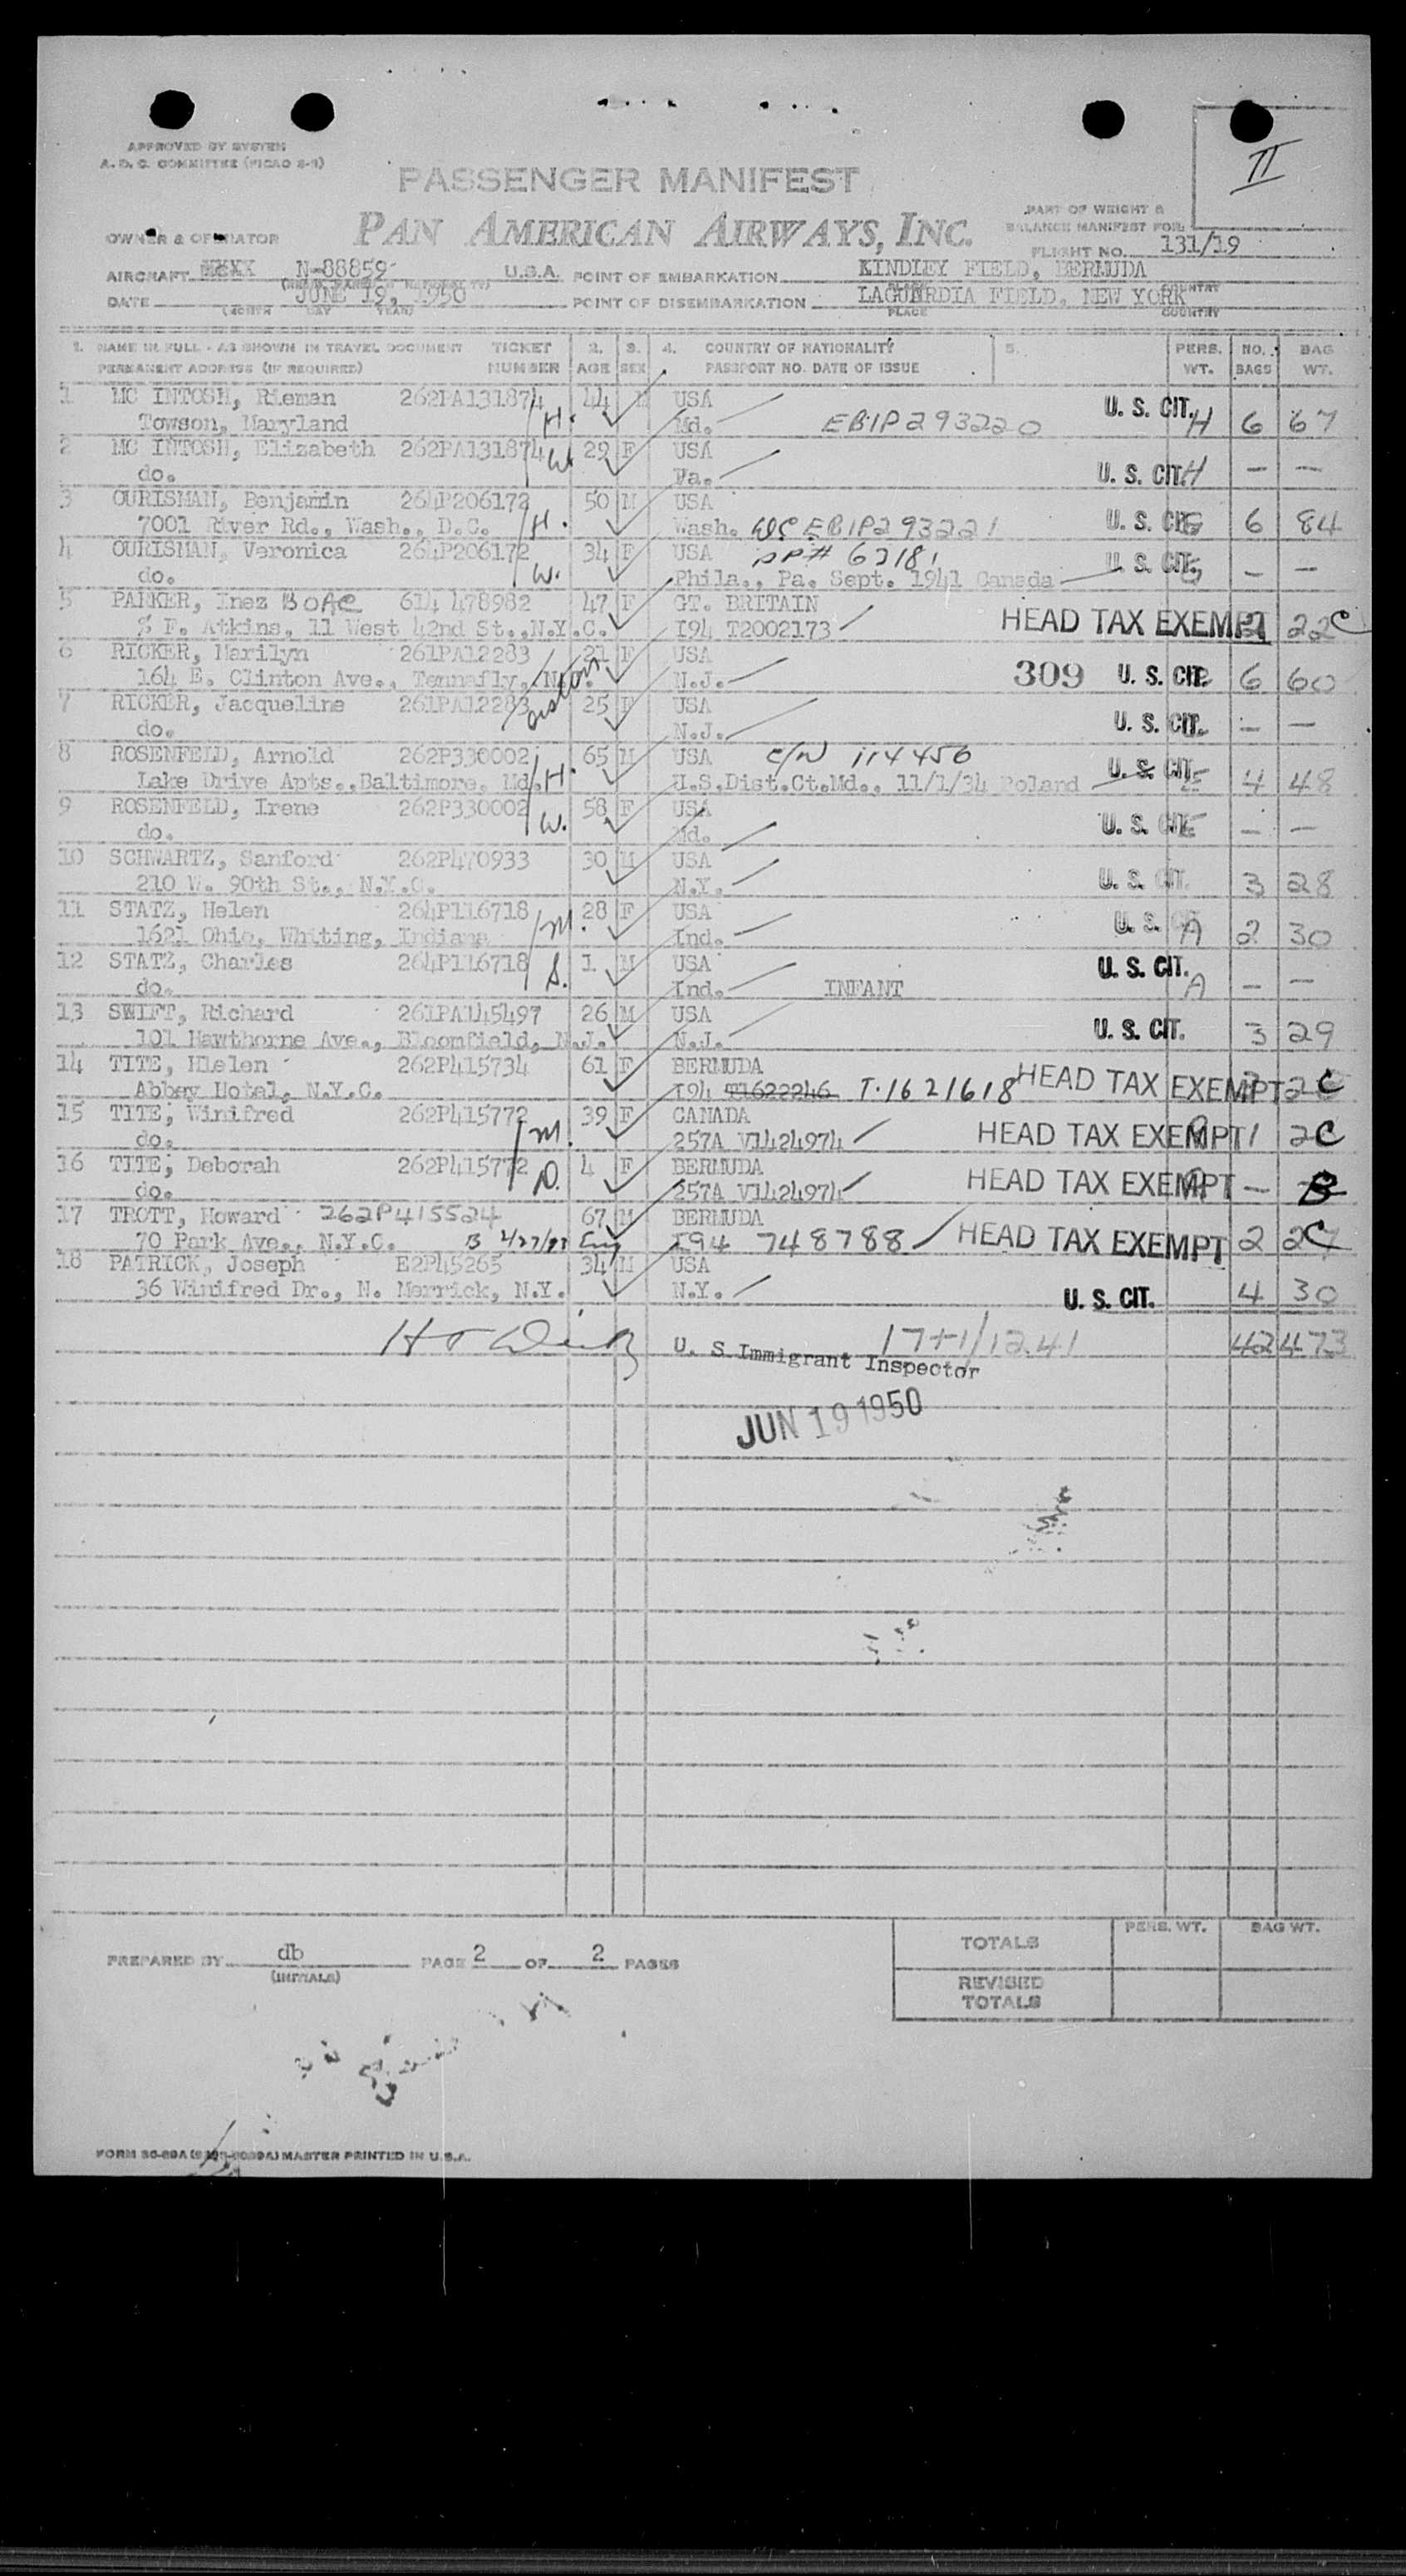 II
APPROVED BY SYSTEM
A. D. C. COMMITTEE (PICAO S-1)
PASSENGER MANIFEST
PART OF WEIGHT &
BALANCE MANIFEST FOR:
OWNER & OPERATOR PAN AMERICAN AIRWAYS, INC.
FLIGHT NO. 131/19
AIRCRAFT N-88859 U.S.A. POINT OF EMBARKATION KINDLEY FIELD, BERMUDA
DATE JUNE 19, 1950 POINT OF DISEMBARKATION LAGUARDIA FIELD, NEW YORK
(MONTH DAY YEAR) PLACE COUNTRY
1. NAME IN FULL - AS SHOWN IN TRAVEL DOCUMENT TICKET 2. 3. 4. COUNTRY OF NATIONALITY 5. PERS. NO. BAG
PERMANENT ADDRESS (IF REQUIRED) NUMBER AGE SEX PASSPORT NO. DATE OF ISSUE WT. BAGS WT.
1 MC INTOSH, Rieman 262PA131874 44 M USA U. S. CIT.
Towson, Maryland H. Md. EB1P293220 H 6 67
2 MC INTOSH, Elizabeth 262PA131874 W. 29 F USA
do. Pa. U. S. CIT. H — —
3 OURISMAN, Benjamin 264P206172 50 M USA
7001 River Rd., Wash., D.C. H. Wash. DC EB1P293221 U. S. CIT. G 6 84
4 OURISMAN, Veronica 264P206172 34 F USA PP# 62181 U. S. CIT.
do. W. Phila., Pa. Sept. 1941 Canada G — —
5 PARKER, Inez BOAC 614 478982 47 F GT. BRITAIN
% F. Atkins, 11 West 42nd St., N.Y.C. I94 T2002173 HEAD TAX EXEMPT 2 22 C
6 RICKER, Marilyn 261PA12283 21 F USA
164 E. Clinton Ave., Tennafly, N.J. N.J. 309 U. S. CIT. 6 60
7 RICKER, Jacqueline 261PA12283 sister 25 F USA
do. N.J. U. S. CIT. — —
8 ROSENFELD, Arnold 262P330002 65 M USA C/N 114456
Lake Drive Apts., Baltimore, Md. H. U.S.Dist.Ct.Md., 11/1/34 Poland U. S. CIT. E 4 48
9 ROSENFELD, Irene 262P330002 58 F USA
do. W. Md. U. S. CIT. E — —
10 SCHWARTZ, Sanford 262P470933 30 M USA
210 W. 90th St., N.Y.C. N.Y. U. S. CIT. 3 28
11 STATZ, Helen 264P116718 28 F USA
1621 Ohio, Whiting, Indiana M. Ind. U. S. CIT. A 2 30
12 STATZ, Charles 264P116718 1 M USA U. S. CIT.
do. S. Ind. INFANT A — —
13 SWIFT, Richard 261PA145497 26 M USA
101 Hawthorne Ave., Bloomfield, N.J. N.J. U. S. CIT. 3 29
14 TITE, Hlelen 262P415734 61 F BERMUDA
Abbey Hotel, N.Y.C. I94 T1622246 T.1621618 HEAD TAX EXEMPT C
15 TITE, Winifred 262P415772 39 F CANADA
do. M. 257A V1424974 HEAD TAX EXEMPT 1 2 C
16 TITE, Deborah 262P415772 4 F BERMUDA
do. D. 257A V1424974 HEAD TAX EXEMPT — B
17 TROTT, Howard 262P415524 67 M BERMUDA
70 Park Ave., N.Y.C. B 2/27/83 Eng I94 748788 HEAD TAX EXEMPT 2 27 C
18 PATRICK, Joseph E2P45265 34 M USA
36 Winifred Dr., N. Merrick, N.Y. N.Y. U. S. CIT. 4 30
17+1/1241 42 473
U. S. Immigrant Inspector
JUN 19 1950
PREPARED BY db PAGE 2 OF 2 PAGES
(INITIALS)
PERS. WT. BAG WT.
TOTALS
REVISED
TOTALS
MASTER PRINTED IN U.S.A.